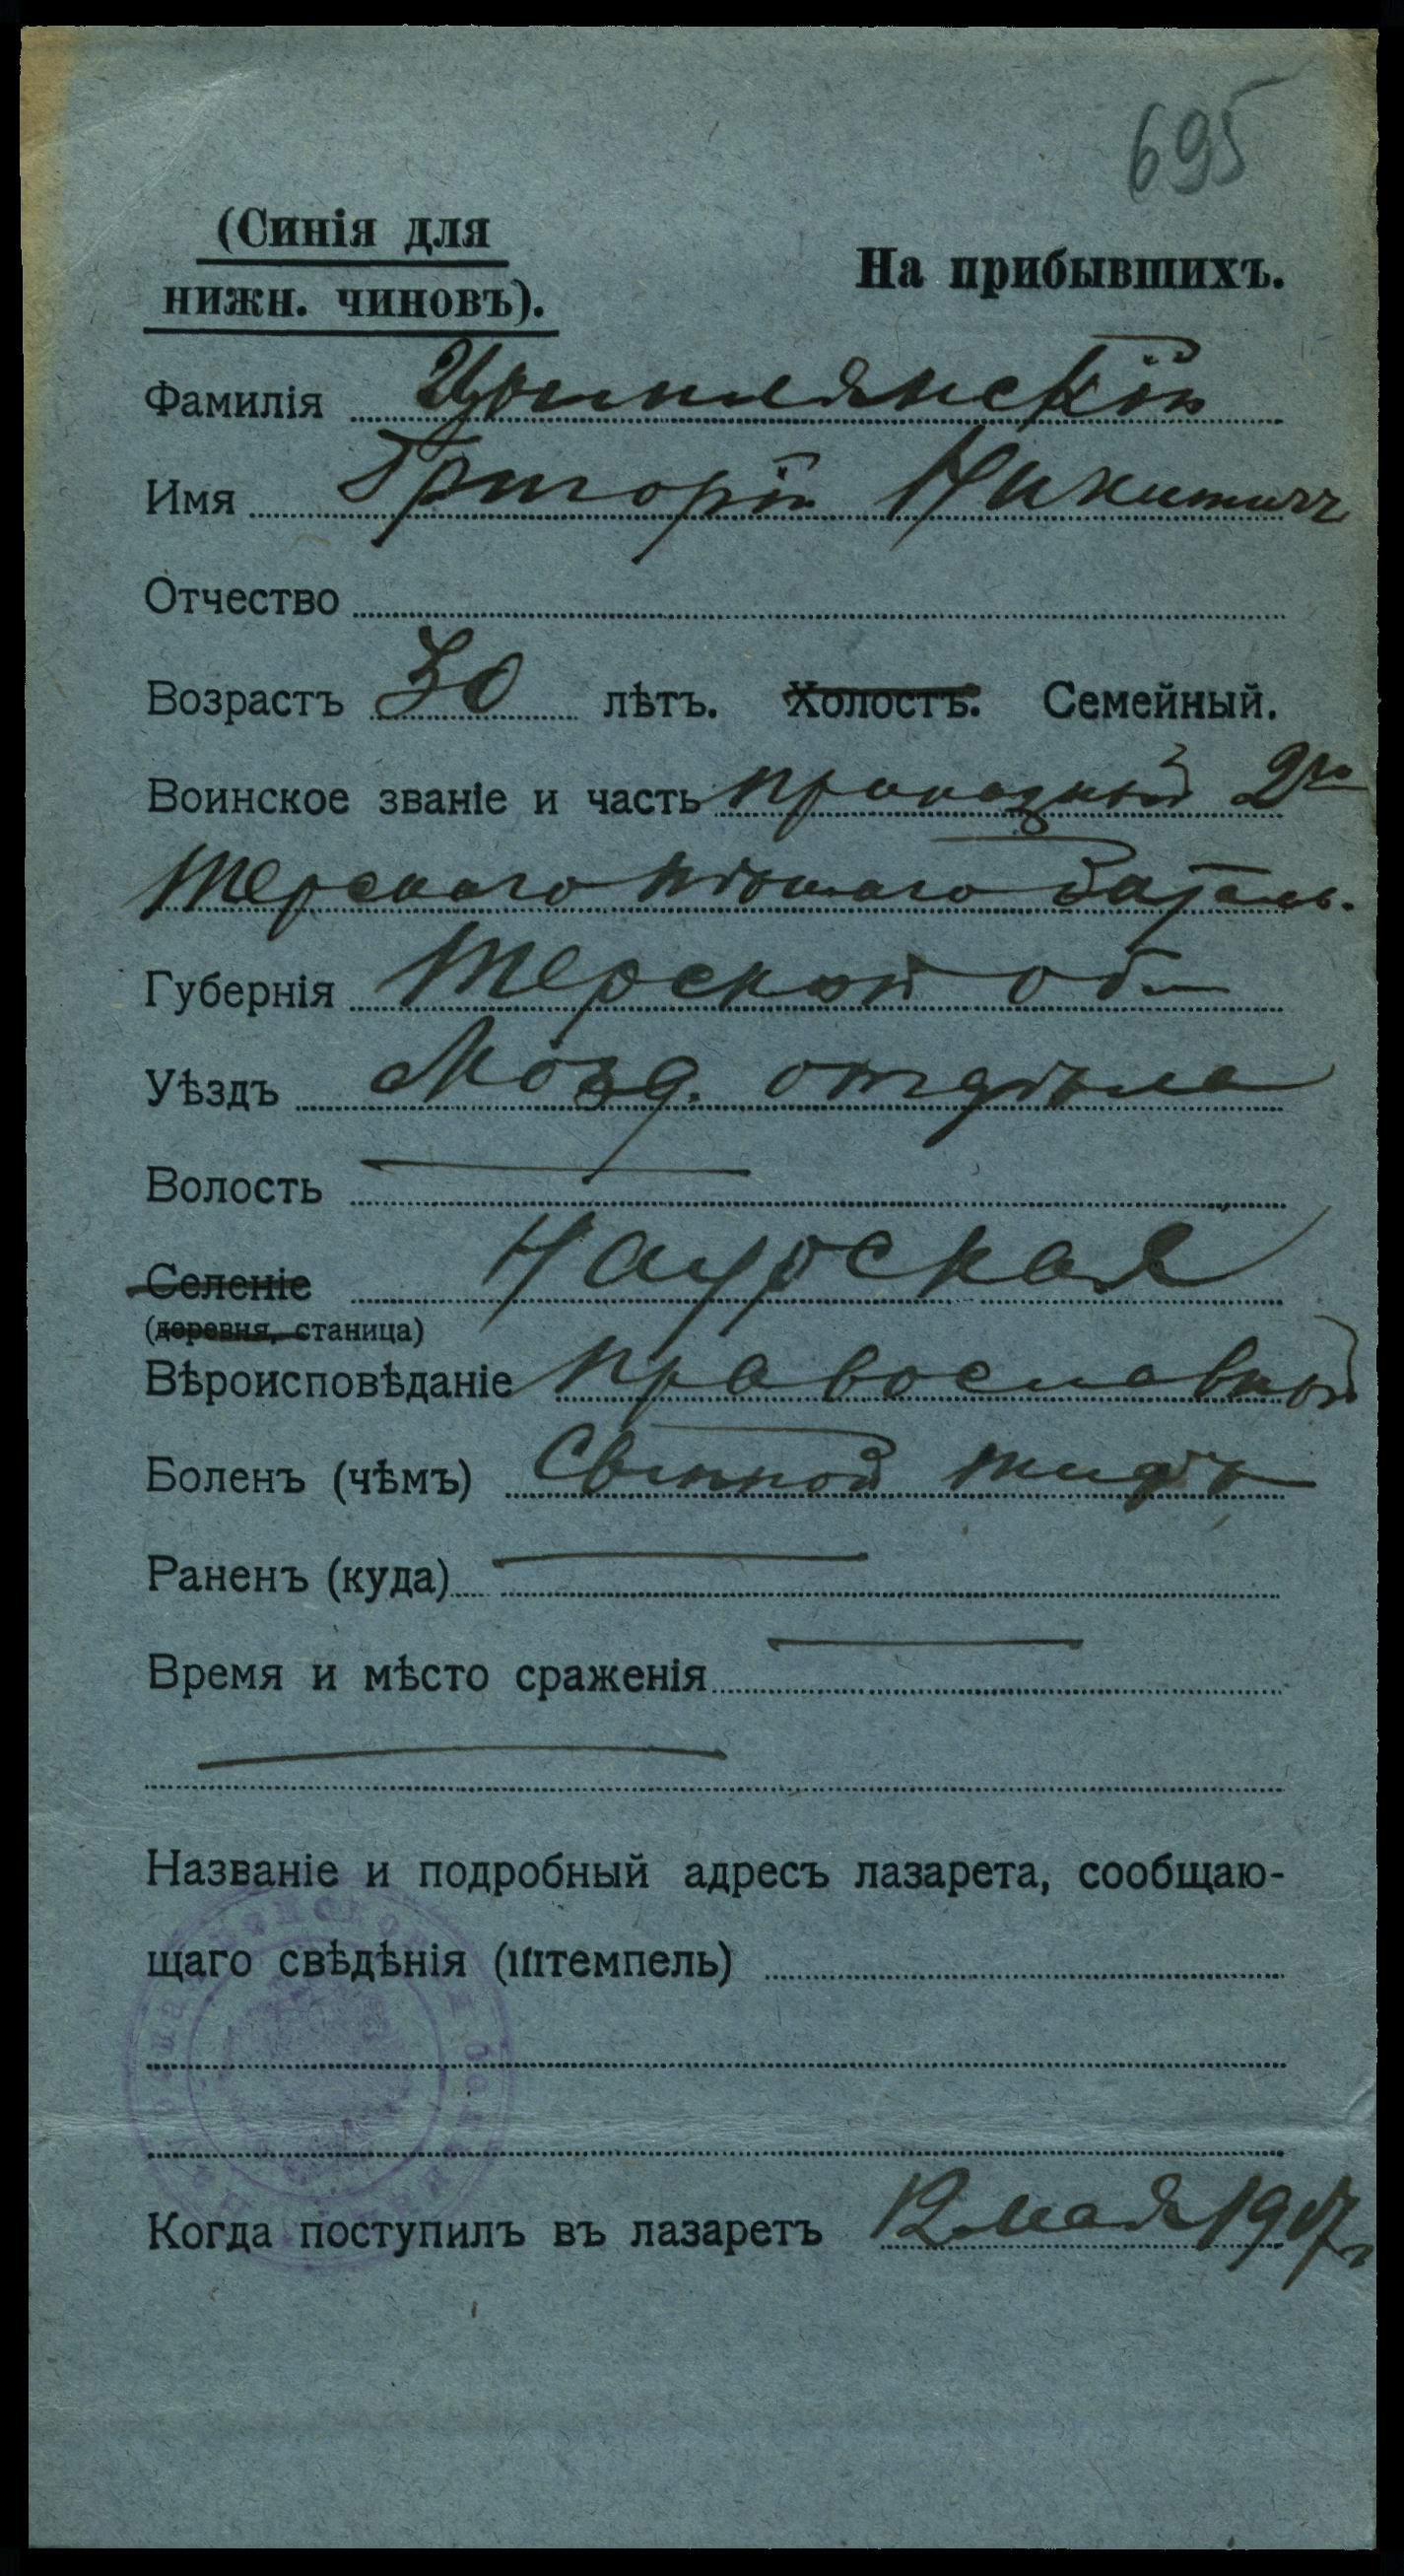 695
(Синія для
нижн. чиновъ).
На прибывшихъ.
Фамилія Цымлянскій
Имя Григорій Никитичъ
Отчество
Возрастъ 30 лѣтъ. Холостъ. Семейный.
Воинское званіе и часть приказный 2го
Терскаго пѣшаго баталь.
Губернія Терской об
Уѣздъ Мозд. отдѣла
Волость
Селеніе Наурская
(деревня, станица)
Вѣроисповѣданіе православный
Боленъ (чѣмъ) Сыпной тифъ
Раненъ (куда)
Время и мѣсто сраженія
Названіе и подробный адресъ лазарета, сообщаю-
щаго свѣдѣнія (штемпель)
Когда поступилъ въ лазаретъ 12 мая 1917 г